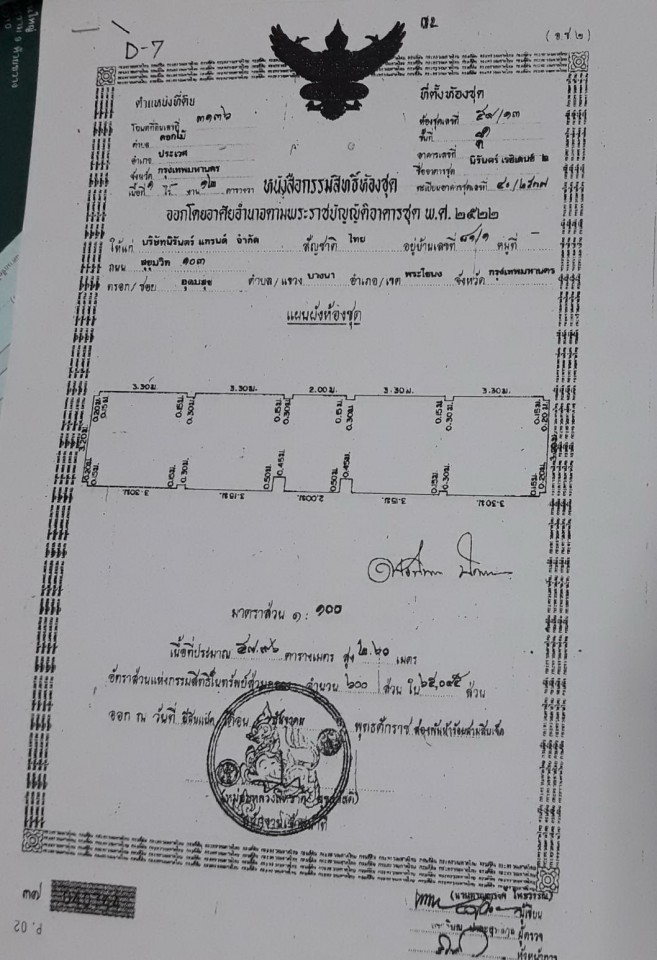 D-7
(อ.ช.๒)
ตำแหน่งที่ดิน
ที่ตั้งห้องชุด
โฉนดที่ดินเลขที่ ๓๑๓๖
ห้องชุดเลขที่ ๕๙/๑๓
ตำบล ดอกไม้
ชั้นที่
อำเภอ ประเวศ
อาคารเลขที่
จังหวัด กรุงเทพมหานคร
ชื่ออาคารชุด นิรันดร์ เรซิเดนซ์ ๒
เนื้อที่ ไร่ งาน ตารางวา
ทะเบียนอาคารชุดเลขที่ ๔๐/๒๕๓๗
หนังสือกรรมสิทธิ์ห้องชุด
ออกโดยอาศัยอำนาจตามพระราชบัญญัติอาคารชุด พ.ศ. ๒๕๒๒
ให้แก่ บริษัทนิรันดร์ แกรนด์ จำกัด สัญชาติ ไทย อยู่บ้านเลขที่ ๘๑/๑ หมู่ที่ -
ถนน สุขุมวิท ๑๐๓
ตรอก/ซอย อุดมสุข ตำบล/แขวง บางนา อำเภอ/เขต พระโขนง จังหวัด กรุงเทพมหานคร
แผนผังห้องชุด
3.30ม. 3.30ม. 2.00ม. 3.30ม. 3.30ม.
0.20ม. 0.15ม. 0.15ม. 0.30ม. 0.15ม. 0.30ม. 0.15ม. 0.30ม. 0.15ม. 0.30ม. 0.15ม. 0.20ม.
0.15ม. 0.30ม. 0.50ม. 0.45ม. 0.50ม. 0.45ม. 0.15ม. 0.30ม. 0.15ม. 0.20ม.
3.30ม. 3.15ม. 2.00ม. 3.15ม. 3.30ม.
มาตราส่วน ๑ : ๑๐๐
เนื้อที่ประมาณ ๕๗.๙๖ ตารางเมตร สูง ๒.๖๐ เมตร
อัตราส่วนแห่งกรรมสิทธิ์ในทรัพย์ส่วนกลาง จำนวน ๖๐๐ ส่วน ใน ๖๕,๐๙๕ ส่วน
ออก ณ วันที่ ยี่สิบแปด เดือน ธันวาคม พุทธศักราช สองพันห้าร้อยสามสิบเจ็ด
๓๗
ผู้เขียน
ผู้ตรวจ
หัวหน้าการ
P.02